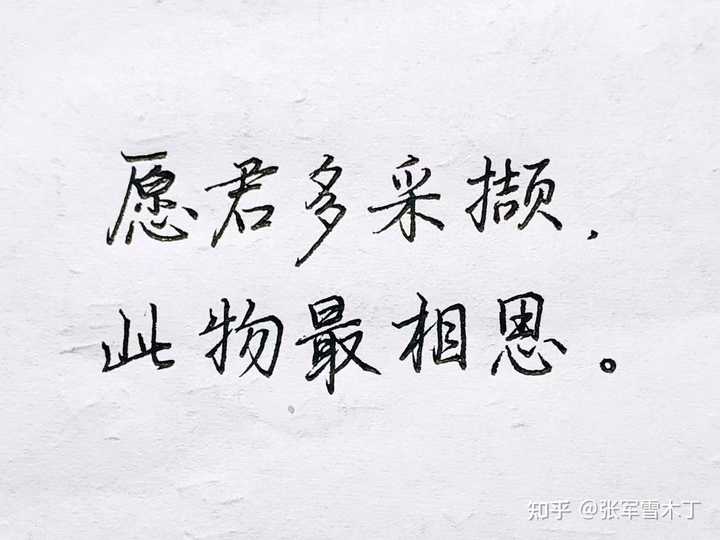 愿君多采撷，
此物最相思。
知乎 @张军雪木丁